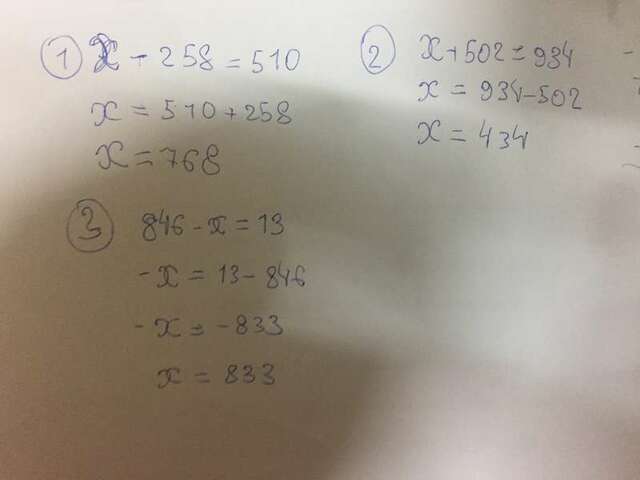 ① x - 258 = 510
x = 510 + 258
x = 768
② x + 502 = 934
x = 934 - 502
x = 434
③ 846 - x = 13
-x = 13 - 846
-x = -833
x = 833